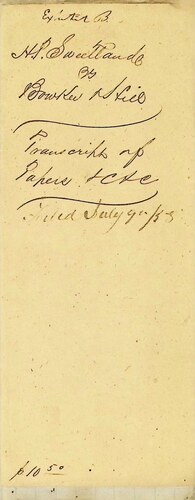 Exhibit B.
H. S. Sweetland
vs
Bowker & Hill
Transcript of
Papers &c &c
Filed July 9th /53
$10.50